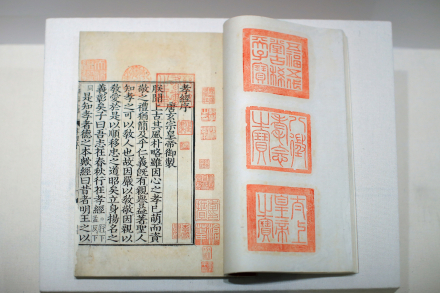 五福五代堂古稀天子寶
八徵耄念之寶
太上皇帝之寶
孝經序
唐玄宗皇帝御製
朕聞上古其風朴略雖因心之孝已萌而資
敬之禮猶簡及乎仁義旣有親譽益著聖人
知孝之可以教人也故因嚴以教敬因親以
教愛於是以順移忠之道昭矣立身揚名之
義彰矣子曰吾志在春秋行在孝經
是知孝者德之本歟經曰昔者明王之以